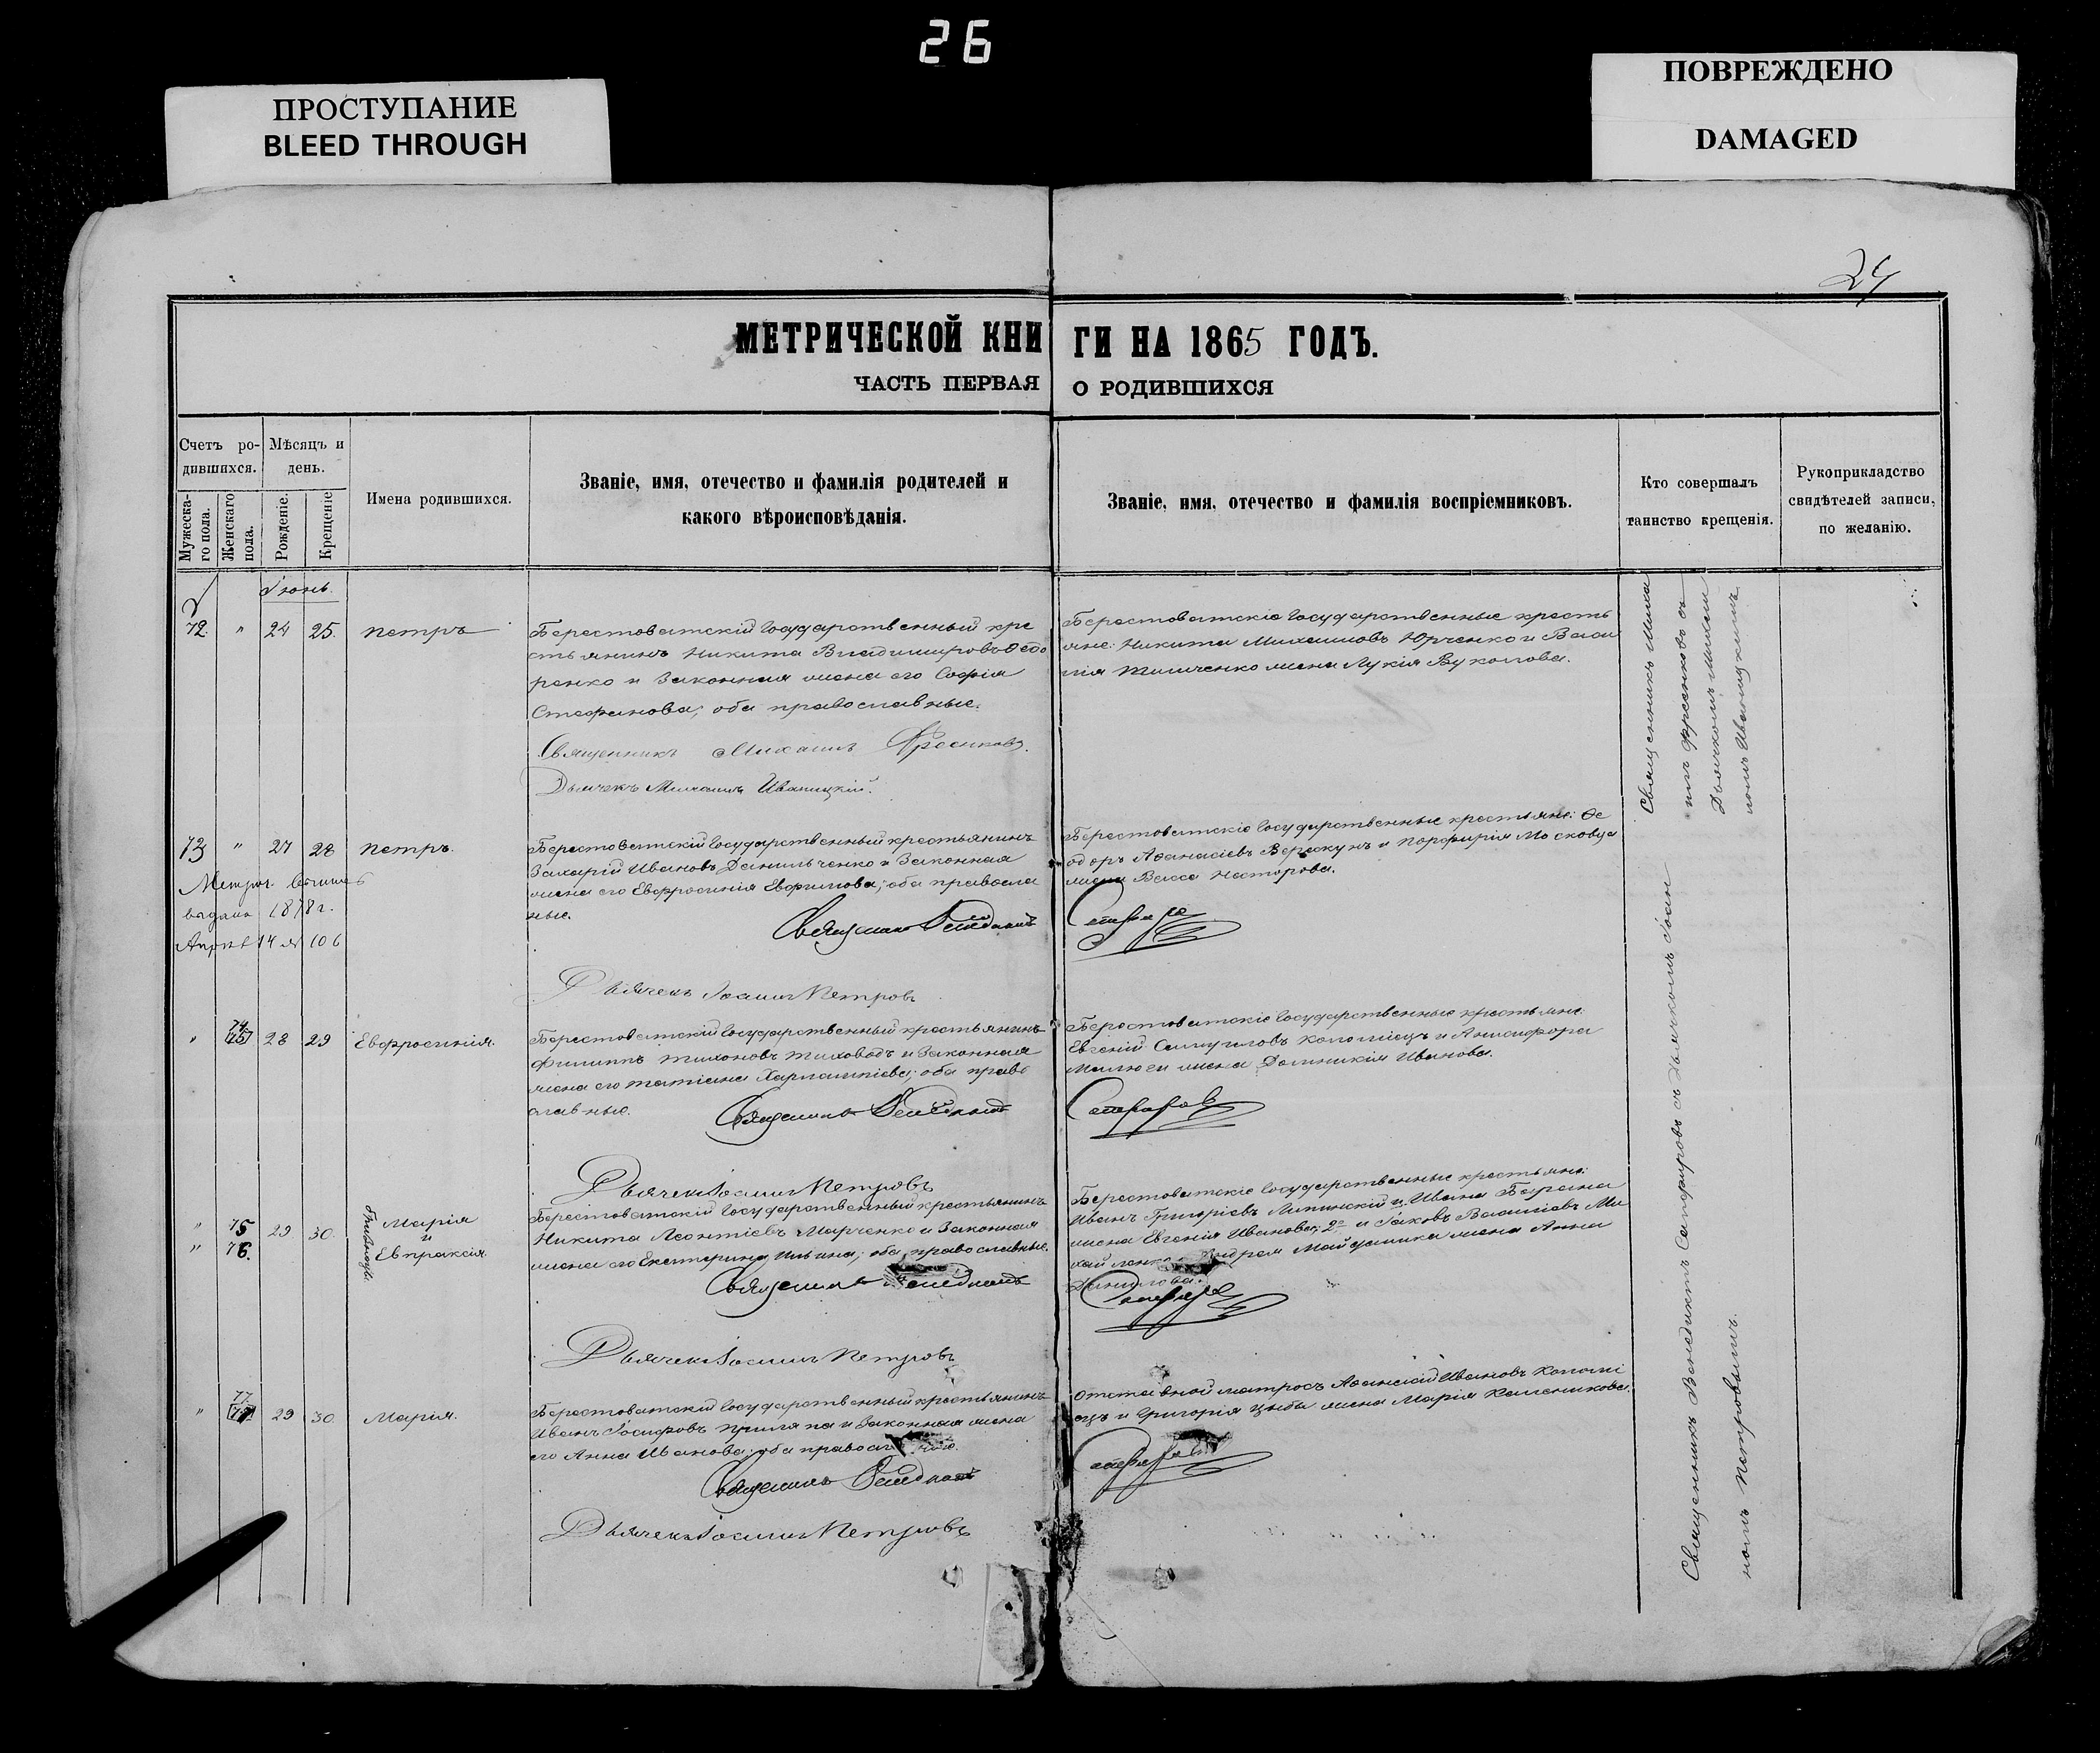 26
ПРОСТУПАНИЕ
BLEED THROUGH
ПОВРЕЖДЕНО
DAMAGED
24
МЕТРИЧЕСКОЙ КНИГИ НА 1865 ГОДЪ.
ЧАСТЬ ПЕРВАЯ О РОДИВШИХСЯ
Счетъ ро-
дившихся.
Мужеска-
го пола.
Женскаго
пола.
Мѣсяцъ и
день.
Рожденіе.
Крещеніе
Имена родившихся.
Званіе, имя, отечество и фамилія родителей и
какого вѣроисповѣданія.
Званіе, имя, отечество и фамилія воспріемниковъ.
Кто совершалъ
таинство крещенія.
Рукоприкладство
свидѣтелей записи,
по желанію.
Іюнь.
72. " 24 25. Петръ
Берестоватскій Государственный кре
стьянинъ Никита Владимировъ Ѳедо
ренко и Законная жена его Софія
Стефанова; оба православные.
Священникъ Михаилъ
Дьячекъ Михаилъ Иваницкій.
Берестоватскіе Государственные кресть
яне: Никита Михаиловъ Юрченко и Васи
лія Тимченко жена Лукія Вуколова.
Священникъ Михаи
лъ съ
Дьячкомъ Михаи
ломъ Иваницкимъ
73 " 27 28 Петръ.
Метрич.
выдана 1878 г.
14 № 106
Берестоватскій Государственный крестьянинъ
Захарій Ивановъ Данильченко и Законная
жена его Евфросинія Евфимова; оба правосла
ные.
Дьячекъ Іоаннъ Петровъ
Берестоватскіе Государственные крестьяне: Ѳе
одоръ Аѳанасіевъ Верескунъ и Порфирія Московца
жена Васса Несторова.
" 74 28 29 Евфросинія.
Берестоватскій Государственный крестьянинъ
Филиппъ Тихоновъ Тиховодъ и Законная
жена его Татіана Харлампіева; оба право
славные.
Дьячекъ Іоаннъ Петровъ
Берестоватскіе Государственные крестьяне:
Евгеній Самуиловъ Коломіецъ и Анисифора
жена Домникія Иванова.
" 75 29 30. Марія
и
" 76. Евпраксія
Близнецы
Берестоватскій Государственный крестьянинъ
Никита Леонтіевъ Марченко и Законная
жена его Екатерина Ильина; оба православные.
Дьячекъ Іоаннъ Петровъ
Берестоватскіе Государственные крестьяне:
Иванъ Григоріевъ Липинскій и Ивана Барана
жена Евгенія Иванова; 2е и Іаковъ Василіевъ Ми
хайленко Андрея жена Анна
Данилова.
" 77 29 30. Марія.
Берестоватскій Государственный крестьянинъ
Иванъ Іосифовъ и Законная жена
его Анна Иванова; оба
Дьячекъ Іоаннъ Петровъ
Отставной матросъ Аѳанасій Ивановъ Коломі
ецъ и Григорія Цыбы жена Марія
Священникъ Венедиктъ Сапфировъ съ Дьячкомъ Іоан
номъ Петровымъ.